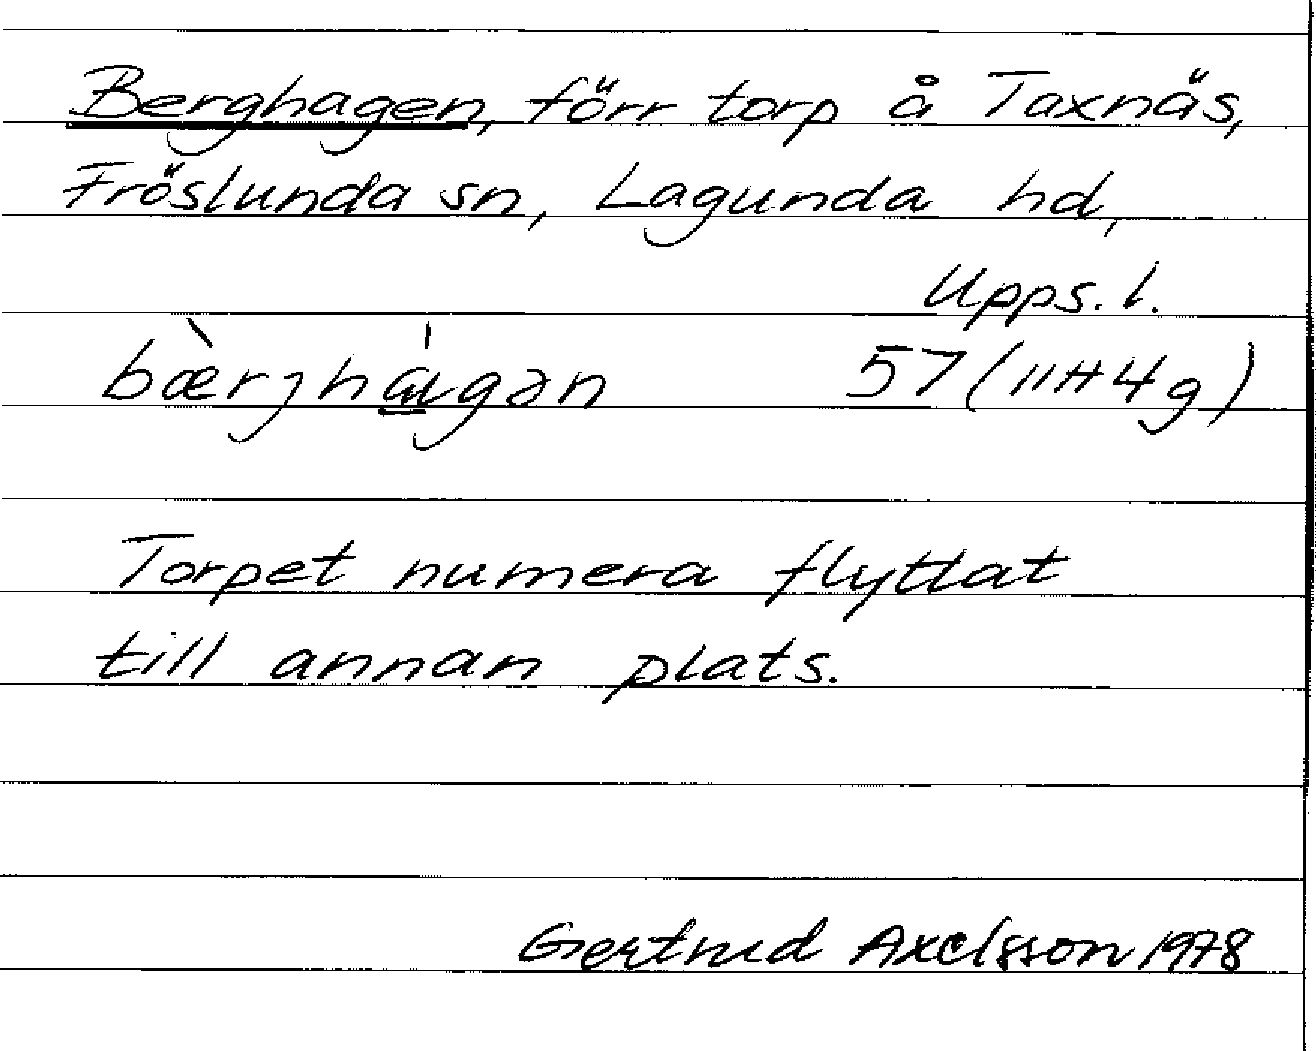 Berghagen, förr torp å Taxnäs,
Fröslunda sn, Lagunda hd,
Upps. l.
bæ̀rjhɑ́gən 57 (11H4g)
Torpet numera flyttat
till annan plats.
Gertrud Axelsson 1978